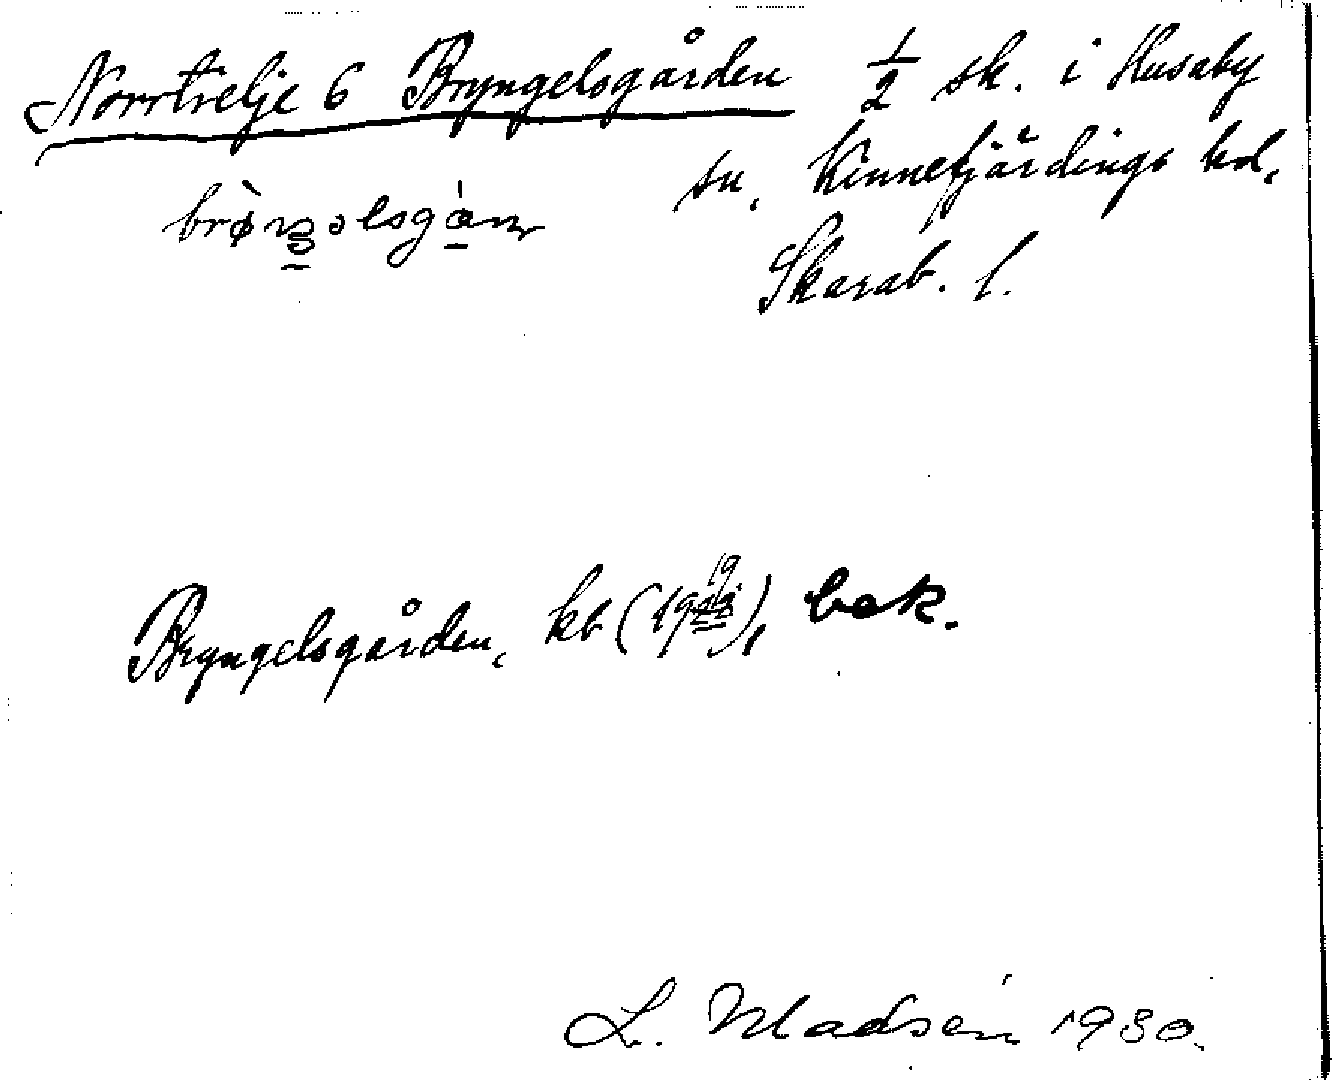 Norrtrelje 6 Bryngelsgården ½ sk. i Husaby
sn, Kinnefjärdings hd,
Skarab. l.
Bryngelsgården, kb (19), bek.
L. Madsén 1930.